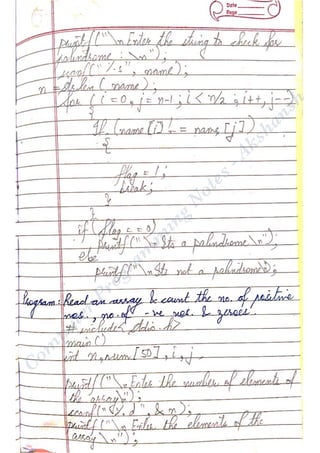 Date
Page
printf("\n Enter the string to check for
palindrome : \n");
scanf("%s", name);
n = strlen(name);
for (i=0, j=n-1; i<n/2; i++, j--)
{
If (name[i] != name[j])
{
flag = 1;
break;
}
}
if (flag == 0)
printf("\n Its a palindrome \n");
else
printf("\n Its not a palindrome");
Program: Read an array & count the no. of positive
nos., no. of -ve nos. & zeroes.
# include< stdio.h>
main()
int n, num[50], i, j
printf("\n Enter the number of elements of
the array \n");
scanf("%d", &n);
printf("\n Enter the elements of the
array \n");
Programming Notes - Akshansh